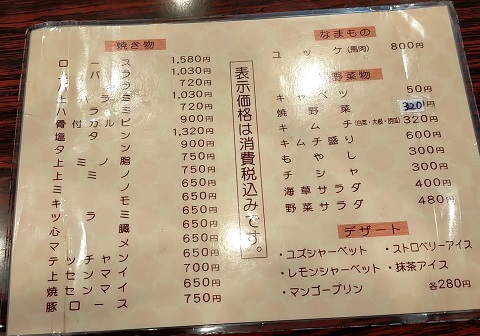 焼き物
ロース 1,580円
上バラ 1,030円
バラ 720円
上ハラミ 1,030円
ハラミ 720円
骨付カルビ 900円
塩タン 1,320円
タン 900円
上ミノ脂 750円
上ミノ 750円
ミノ 650円
キモ 650円
ツラミ 650円
心臓 650円
マメ 650円
テッチャン 650円
上センマイ 700円
焼センマイ 650円
豚ロース 750円
表示価格は消費税込みです。
なまもの
ユッケ(馬肉) 800円
野菜物
キャベツ 50円
焼野菜 320円
キムチ(白菜・大根・胡瓜) 320円
キムチ盛り 600円
もやし 300円
チシャ 300円
海草サラダ 400円
野菜サラダ 480円
デザート
・ユズシャーベット ・ストロベリーアイス
・レモンシャーベット ・抹茶アイス
・マンゴープリン 各280円